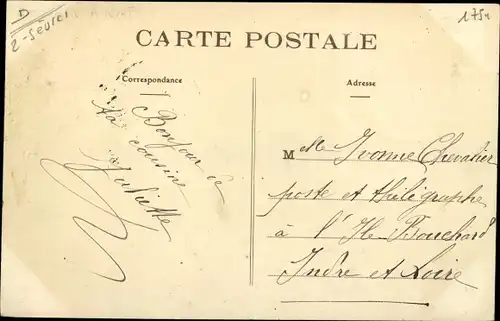 D
2-Sèvres
1754
CARTE POSTALE
Correspondance
Adresse
Bonjour de
ta cousine
Juliette
Mlle Yvonne Chevalier
poste et thélégraphe
à l'Ile Bouchard
Indre et Loire